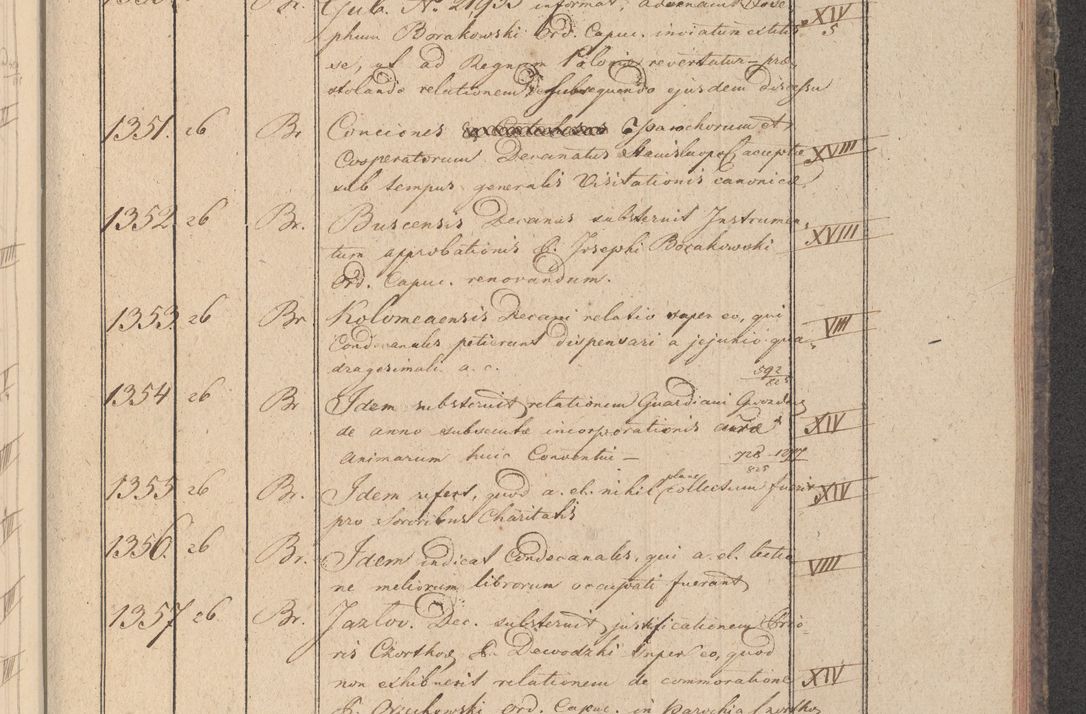 Gub. N. 21,933 informat, advenam Jose
phum Borakowski Ord. Capuc. invictum extitis XIV 5
se, ut ad Regnum Poloniæ revertatur – præ
stolando relationem de subsequendo ejusdem discessu
1351. 26 Br Conciones Parochorum et
Cooperatorum Decanatus Stanislaopol. acceptæ XVIII
sub tempus generalis Visitationis canonicæ
1352. 26 Br. Buscensis Decanus substernit Instrumen
tum approbationis P. Josephi Borakowski XVIII
Ord. Capuc. renovandum.
1353. 26 Br. Kolomeaensis Decani relatio super eo, qui
Condecanales petierunt dispensari a jejunio qua VIII
dragesimali a. c.
592/825
1354 26 Br Idem substernit relationem Guardiani Gwozdz
de anno subsecutæ incorporationis curæ XIV
animarum huic Conventui –
825
1355 26 Br. Idem refert, quod a. el. nihil plane collectum fuerit XIV
pro Sororibus Charitatis
1356. 26 Br. Idem indicat Condecanales, qui a. el. lectio
ne meliorum librorum occupati fuerant VIII
1357 26 Br. Jazlov. Dec. substernit justificationem Prio
ris Czortkov. P. Dewodzki super eo, quod
non exhibuerit relationem de commoratione XIV
P. Orzechowski Ord. Capuc. in Parochia Czortkov